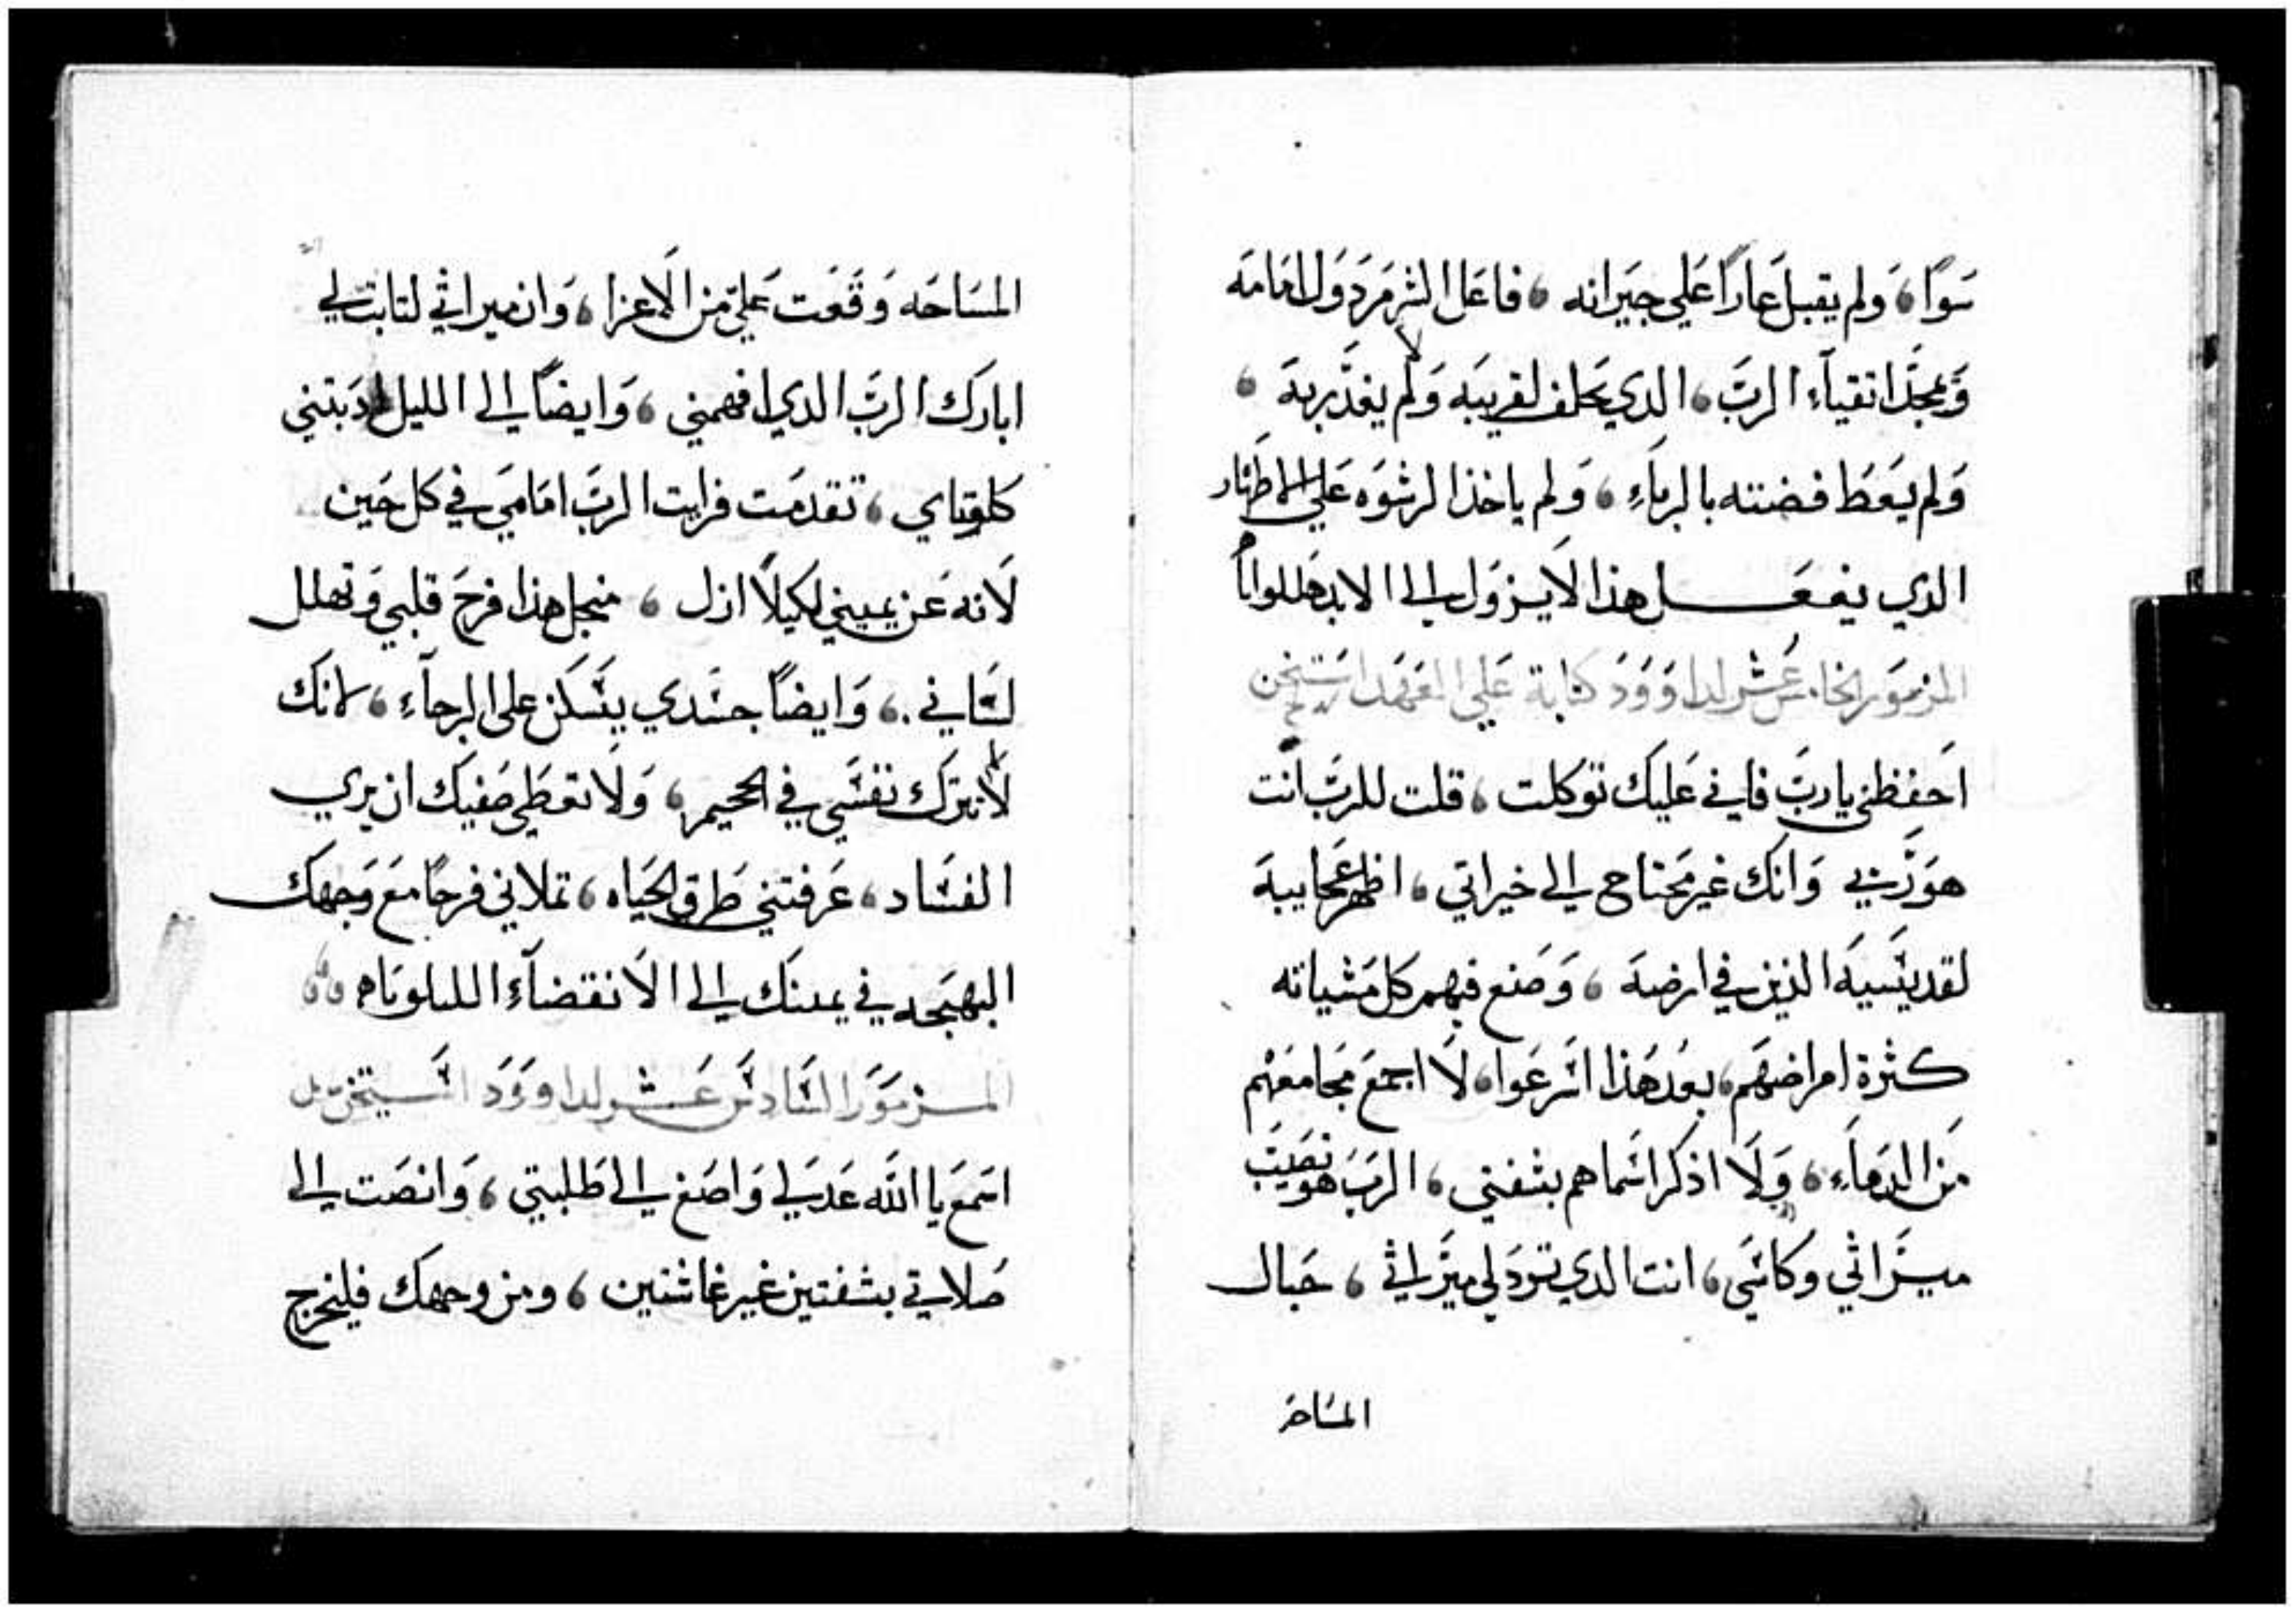 سَوًا، وَلم يقبل عَارًا عَلي جيَرانه، فاعَل الشر مَردَوَل امَامَه
وَيمجَّد اتقيآء الربَّ، الدي يحَلف لقريبَه وَلم يغدَّر بهَ،
وَلم يعَطَ فضته بالربآءِ، وَلم ياخذ الرشوَه عَلي الاطهار
الدي يفعَل هَذا لَا يزوَل الي الابد هَللوايا
المزموَر الخامس عَشر لداوَوَد كتابة عَلي العَهَد استيخن
احَفظني يا ربَّ فاني عَليكَ توكلت، قلت للربَّ انت
هوَ ربَّي وَانكَ غير محَتاج الي خيراتي، اظهر عَجَايبهَ
لقديسَيهَ الذين في ارضهَ، وَصَنع فيهم كل مَشياته
كثرة امراضهَم، بعدَ هَذا اسَرعَوا، لَا اجمعَ مجَامعَهم
مَن الدمَاءِ، وَلَا اذكر اسَماهم بشفتي، الربَ هوَ نصَيبَ
ميَراثي وكاسَي، انت الدي ترَد لي ميرَاثي، حَبال
المسَاحَه
المسَاحَه وَقعَت عَليّ مَن الَاعزا، وَان ميراثي لثابت لي
ابارَك الربَّ الدي افهمني، وَايضًا الي الليل ادَبتني
كلوتاي، تقدمَت فرايت الربَّ امَامَي في كل حَين
لَانه عَن يميني لكيلَا ازل، منجل هذا فرحَ قلبي وَتهلل
لسَاني، وَايضًا جسَدي يسَكن علي الرجآءِ، لانكَ
لَا تترك نفسَي في الجحيم، وَلَا تعَطي صَفيك ان يري
الفسَاد، عَرفتني طَرق الحيَاه، تملاني فرحًا معَ وَجهكَ
البهَجه في يمينَك الي الَانقضآءِ الليلويَاه
المزموَر السَادسَ عَشر لداووَد استيخن
اسَمعَ يا اللَه عَدلي وَاصَغ الي طَلبتي، وَانصَت الي
صَلاتي بشفتين غير غاشتين، ومن وجهك فليخرج